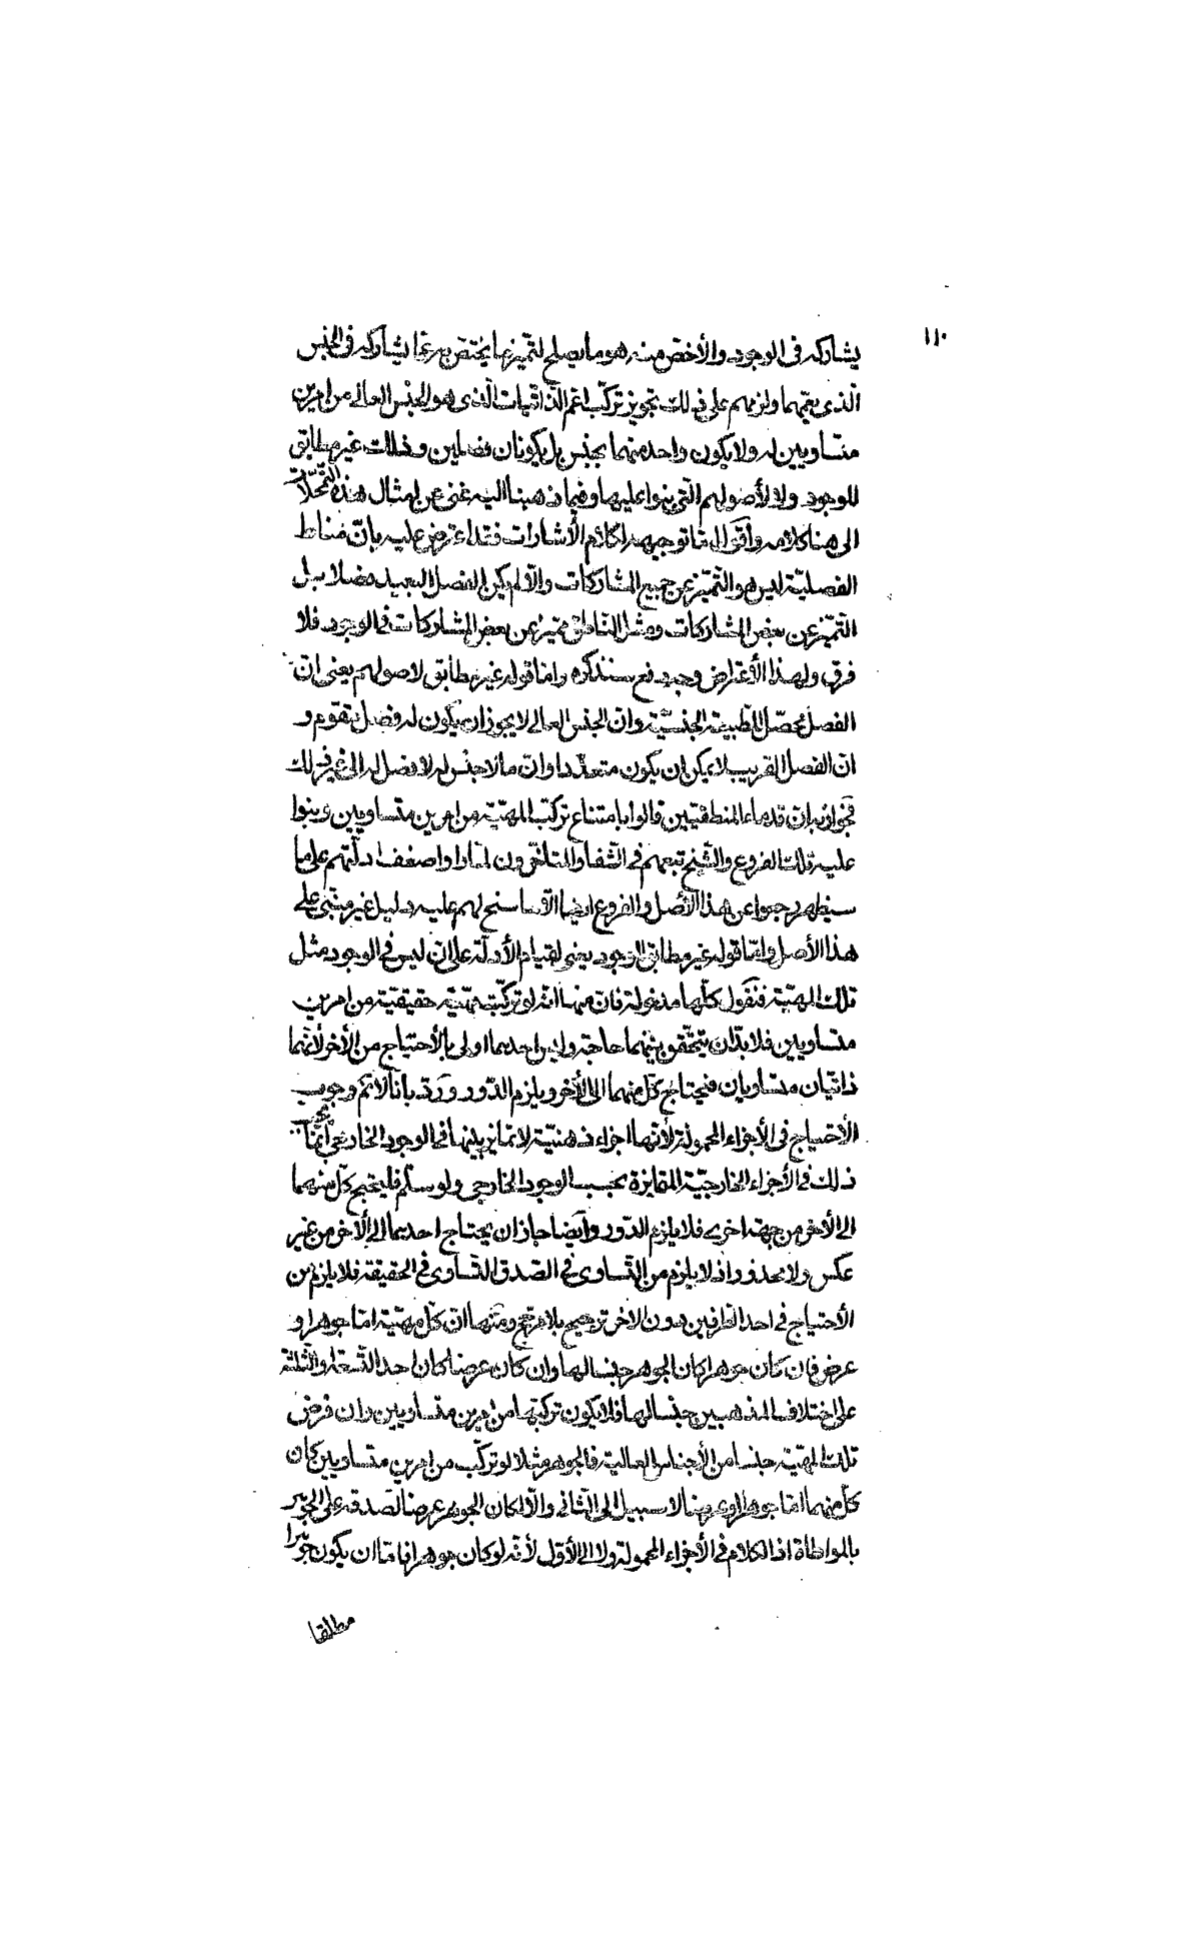 ١١٠
يشاركه فى الوجود والأخص منه هو ما يصلح لتميز ما يختص به عما يشاركه فى الجنس
الذى يعمهما ولزمهم على ذلك تجويز تركب اعم الذاتيات الذى هو الجنس العالى من امرين
متساويين له ولا يكون واحد منهما بجنس بل يكونان فصلين وذلك غير مطابق
للوجود ولا لأصولهم التى بنوا عليها وفيما ذهبنا اليه غنى عن امثال هذه التمحلات
الى هنا كلامه وأقول اما توجيهه لكلام الأشارات فقد اعترض عليه بان مناط
الفصلية ليس هو التميز عن جميع المشاركات والا لم يكن الفصل البعيد فصلا بل
التميز عن بعض المشاركات ومثل الناطق مميز عن بعض المشاركات فى الوجود فلا
فرق ولهذا الأعتراض وجه دفع سنذكره واما قوله غير مطابق لاصولهم يعنى ان
الفصل محصل للطبيعة الجنسية وان الجنس العالى لا يجوز ان يكون له فصل مقوم و
ان الفصل القريب لا يمكن ان يكون متعددا وان ما لا جنس له لا فصل له الى غير ذلك
فجوابه ان قدماء المنطقيين قالوا بامتناع تركب المهية من امرين متساويين وبنوا
عليه تلك الفروع والشيخ تبعهم فى الشفا والمتاخرون لما راوا ضعف ادلتهم على ما
سيظهر رجعوا عن هذا الأصل والفروع ايضا الا ما سنح لهم عليه دليل غير مبتنى على
هذا الأصل واما قوله غير مطابق للوجود يعنى لقيام الأدلة على ان ليس فى الوجود مثل
تلك المهية فنقول كلها مدخولة فان منها انه لو تركبت مهية حقيقية من امرين
متساويين فلا بد ان يتحقق بينهما حاجة وليس احديهما اولى بالأحتياج من الأخر لأنهما
ذاتيان متساويان فيحتاج كل منهما الى الأخر ويلزم الدور ورد بانا لا نم وجوب
الأحتياج فى الأجزاء المحمولة لأنها اجزاء ذهنية لا تمايز بينها فى الوجود الخارجى انما يجب
ذلك فى الأجزاء الخارجية المتمايزة بحسب الوجود الخارجى ولو سلم فليحتج كل منهما
الى الأخر من جهة اخرى فلا يلزم الدور وأيضا جاز ان يحتاج احديهما الى الأخر من غير
عكس ولا محذور اذ لا يلزم من التساوى فى الصدق التساوى فى الحقيقة فلا يلزم من
الأحتياج فى احد الطرفين دون الاخر ترجيح بلا مرجح ومنها ان كل مهية اما جوهر او
عرض فان كان جوهرا كان الجوهر جنسا لها وان كان عرضا كان احد التسعة او الثلثة
على اختلاف المذهبين جنسا لها فلا يكون تركبها من امرين متساويين وان فرض
تلك المهية جنسا من الأجناس العالية فالجوهر مثلا لو تركب من امرين متساويين كان
كل منهما اما جوهرا او عرضا لا سبيل الى الثانى والا لكان الجوهر عرضا لصدقه على الجوهر
بالمواطاة اذ الكلام فى الأجزاء المحمولة ولا الى الأول لأنه لو كان جوهرا فاما ان يكون جوهرا
مطلقا